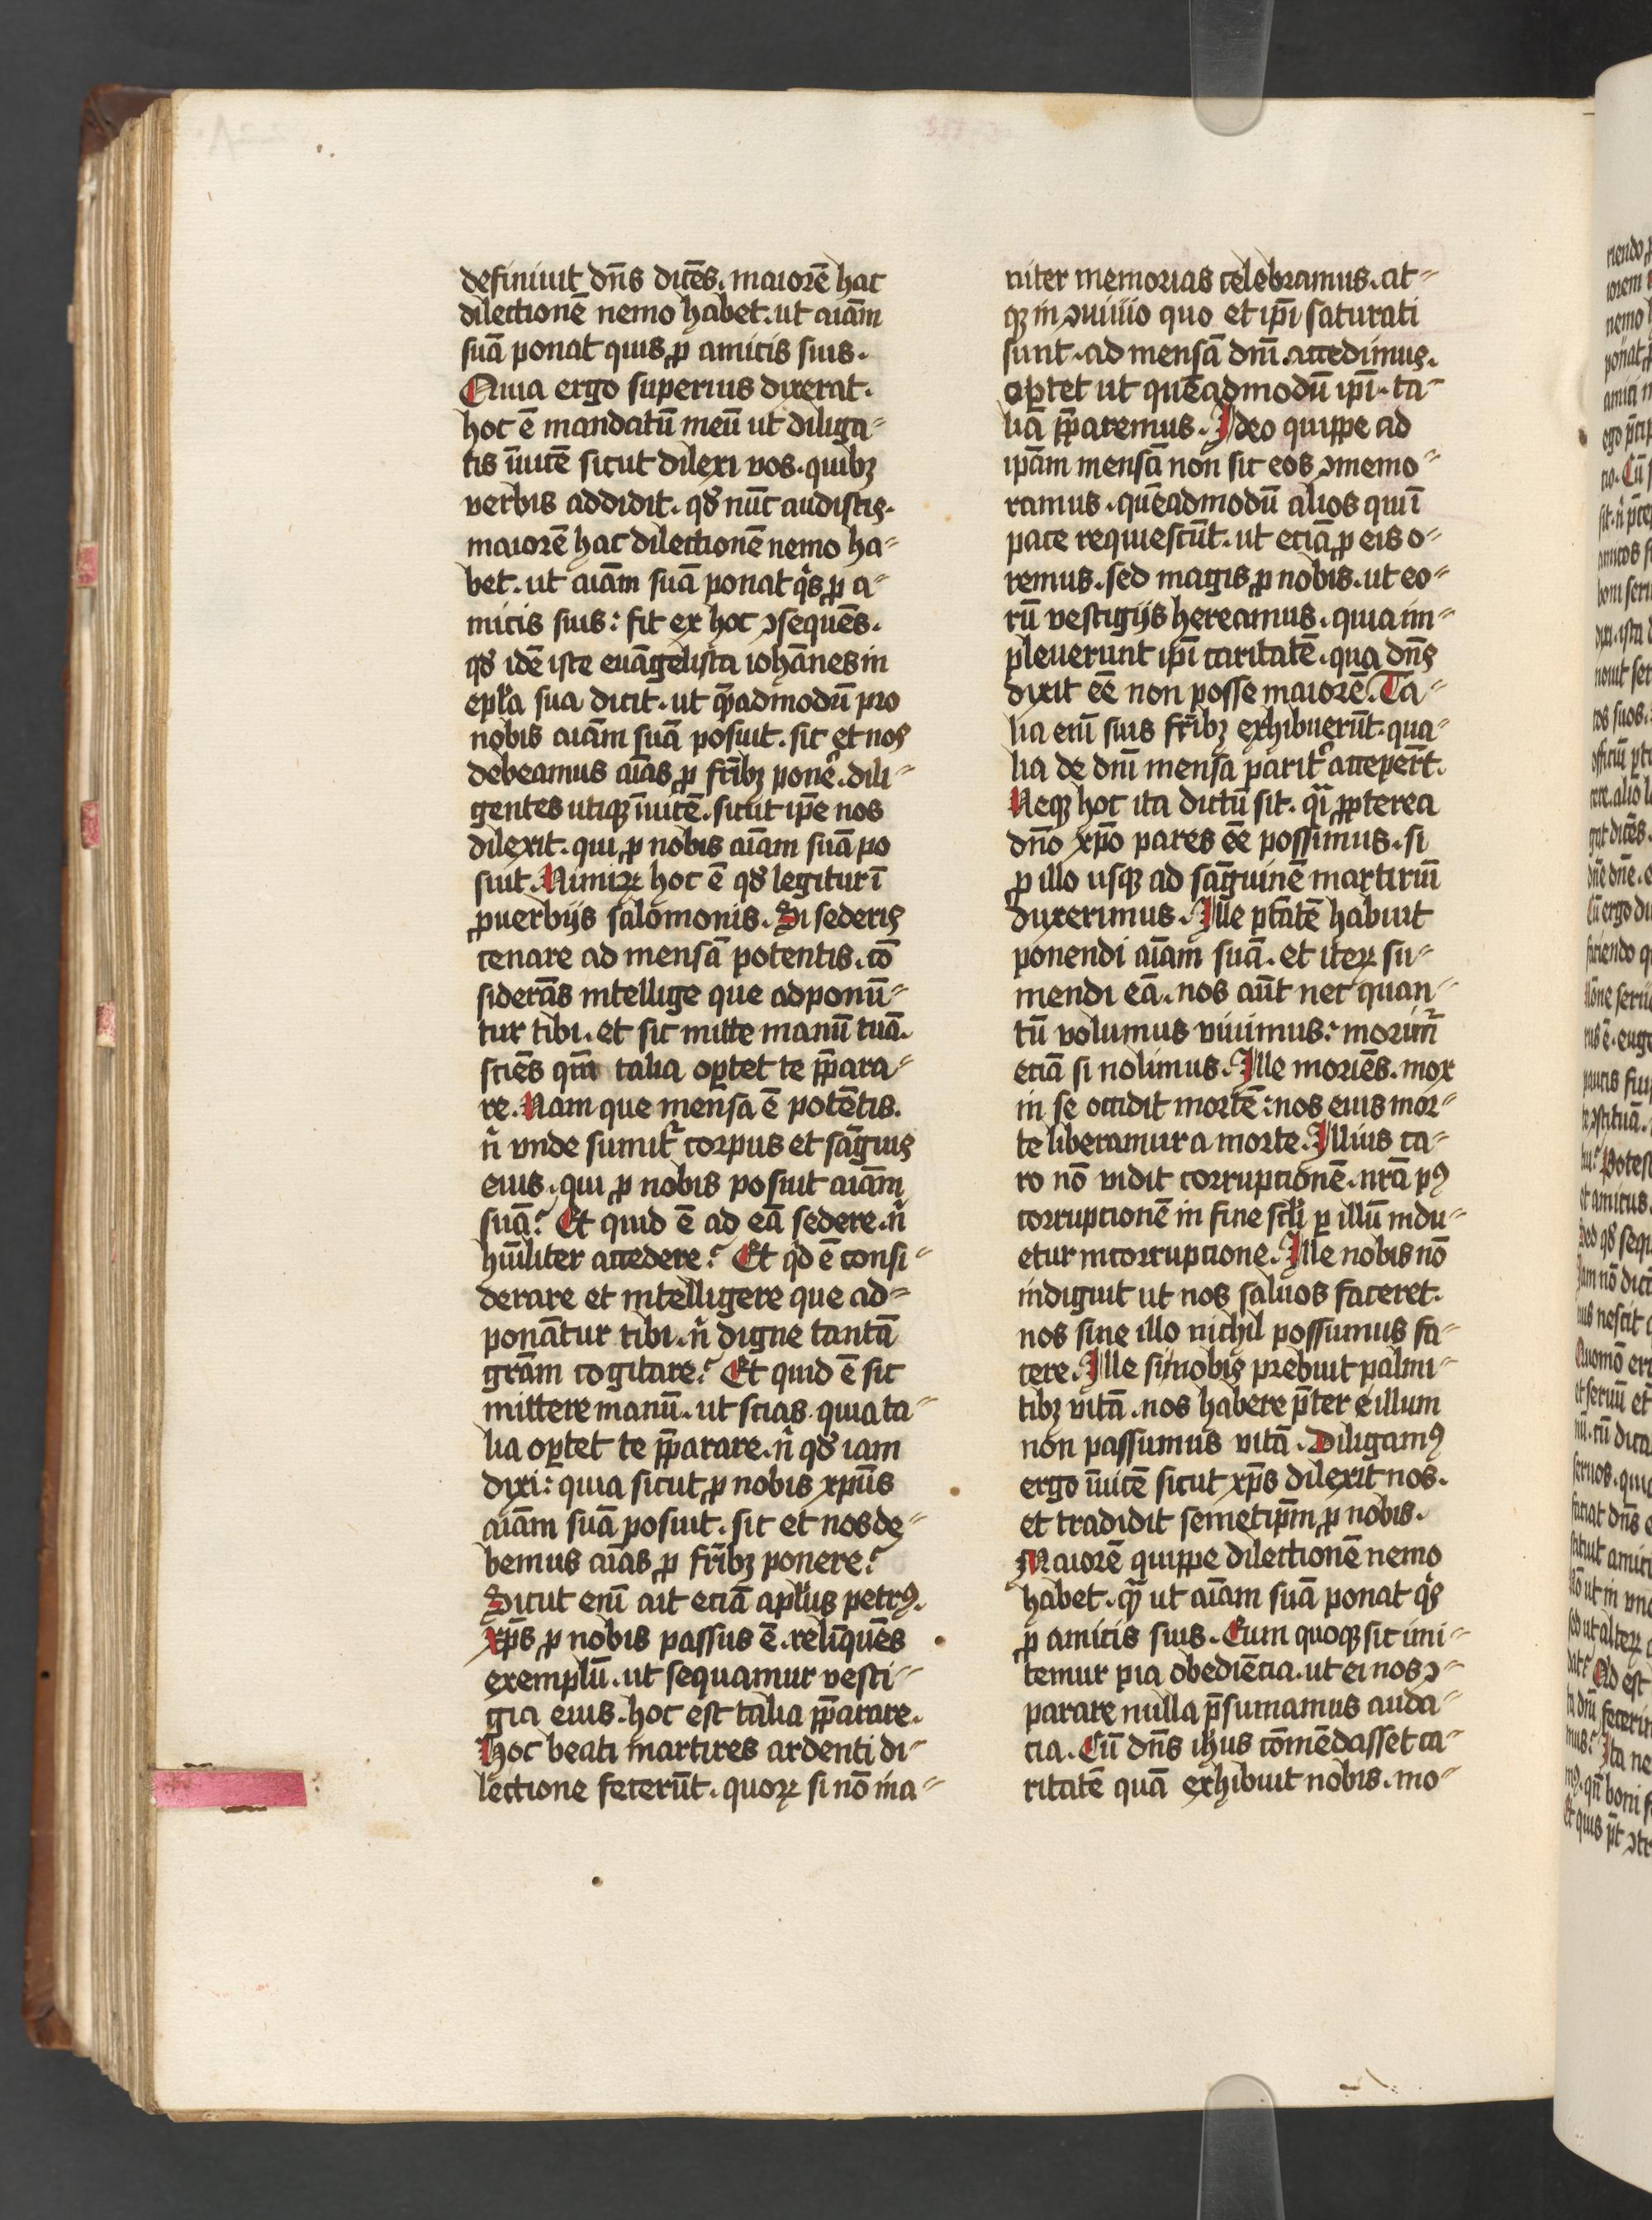 definiuit dn̄s dicēs. maiorē hac
dilectionē nemo habet. ut aīam
suā ponat quis ꝓ amicis suis.
Quia ergo superius dixerat.
hoc ē mandatū meū ut diliga⸗
tis īuicē sicut dilexi vos. quibꝫ
verbis addidit. qđ nūc audistis.
maiorē hac dilectionē nemo ha⸗
bet. ut aīam suā ponat qͥs ꝓ a⸗
micis suis: fit ex hoc ↄsequēs.
qđ idē iste euāgelista iohānes in
epl̄a sua dicit. ut quēadmodū pro
nobis aīam suā posuit. sic et nos
debeamus aīas ꝓ fr̄ibꝫ ponēͬ. dili⸗
gentes utiqꝫ īuicē. sicut ip̄e nos
dilexit. qui ꝓ nobis aīam suā po
suit. Nimiꝝ hoc ē qđ legitur ī
ꝓuerbijs salomonis. Si sederis
cenare ad mensā potentis. cō
siderās intellige que adponū⸗
tur tibi. et sic mitte manū tuā.
sciēs qm̄ talia oꝑtet te p̄para⸗
re. Nam que mensa ē potētis.
n̄ vnde sumit᷑ corpus et sāguis
eius. qui ꝓ nobis posuit aīam
suā? Et quid ē ad eā sedere. n̄
hūiliter accedere? Et qͥd ē consi⸗
derare et intelligere que ad⸗
ponātur tibi. n̄ digne tantā
grām cogitare? Et quid ē sic
mittere manū. ut scias quia ta⸗
lia oꝑtet te p̄parare. n̄ qđ iam
dixi: quia sicut ꝓ nobis xpūs
aīam suā posuit. sic et nos de⸗
bemus aīas ꝓ fr̄ibꝫ ponere?
Sicut enī ait eciā apl̄us petrꝰ.
xp̄s ꝓ nobis passus ē. reliquēs
exemplū. ut sequamur vesti⸗
gia eius. hoc est talia p̄parare.
Hoc beati martires ardenti di⸗
lectione fecerūt. quoꝝ si nō ina⸗
niter memorias celebramus. at⸗
qꝫ in ↄuiuio quo et ip̄i saturati
sunt. ad mensā dnī accedimus.
oꝑtet ut quēadmodū ip̄i. ta⸗
lia p̄paremus. Ideo quippe ad
ipām mensā non sic eos ↄmemo⸗
ramus. quēadmodū alios qui ī
pace requiescūt. ut eciā ꝓ eis o⸗
remus. sed magis ꝓ nobis. ut eo⸗
rū vestigijs hereamus. quia im⸗
pleuerunt ip̄i caritatē. qua dn̄s
dixit eē non posse maiorē. Ta⸗
lia enī suis fr̄ibꝫ exhibuerūt. qua⸗
lia de dnī mensa parit᷑ acceper̄t.
Neqꝫ hoc ita dictū sit. qͣi ꝓpterea
dn̄o xp̄o pares eē possimus. si
ꝓ illo usqꝫ ad sāguinē martiriū
duxerimus. Ille ptātē habuit
ponendi aīam suā. et iteꝝ su⸗
mendi eā. nos aūt nec quan⸗
tū volumus viuimus: morim᷑
eciā si nolimus. Ille moriēs. mox
in se occidit mortē: nos eius mor⸗
te liberamur a morte. Illius ca⸗
ro nō vidit corruptionē. nrā pꝰ
corruptionē in fine scl̄i ꝑ illū indu⸗
etur incorruptione. Ille nobis nō
indiguit ut nos saluos faceret.
nos sine illo nichil possumus fa⸗
cere. Ille se nobis prebuit palmi⸗
tibꝫ vitā. nos habere p̄ter illum
non possumus vitā. Diligamꝰ
ergo īuicē sicut xp̄s dilexit nos.
et tradidit semetip̄m ꝓ nobis.
Maiorē quippe dilectionē nemo
habet. qͣ ut aīam suā ponat qͥs
ꝓ amicis suis. Eum quoqꝫ sic imi⸗
temur pia obediēcia. ut ei nos ↄ⸗
parare nulla p̄sumamus auda⸗
cia. Cū dn̄s ih̄us cōmēdasset ca⸗
ritatē quā exhibuit nobis. mo⸗